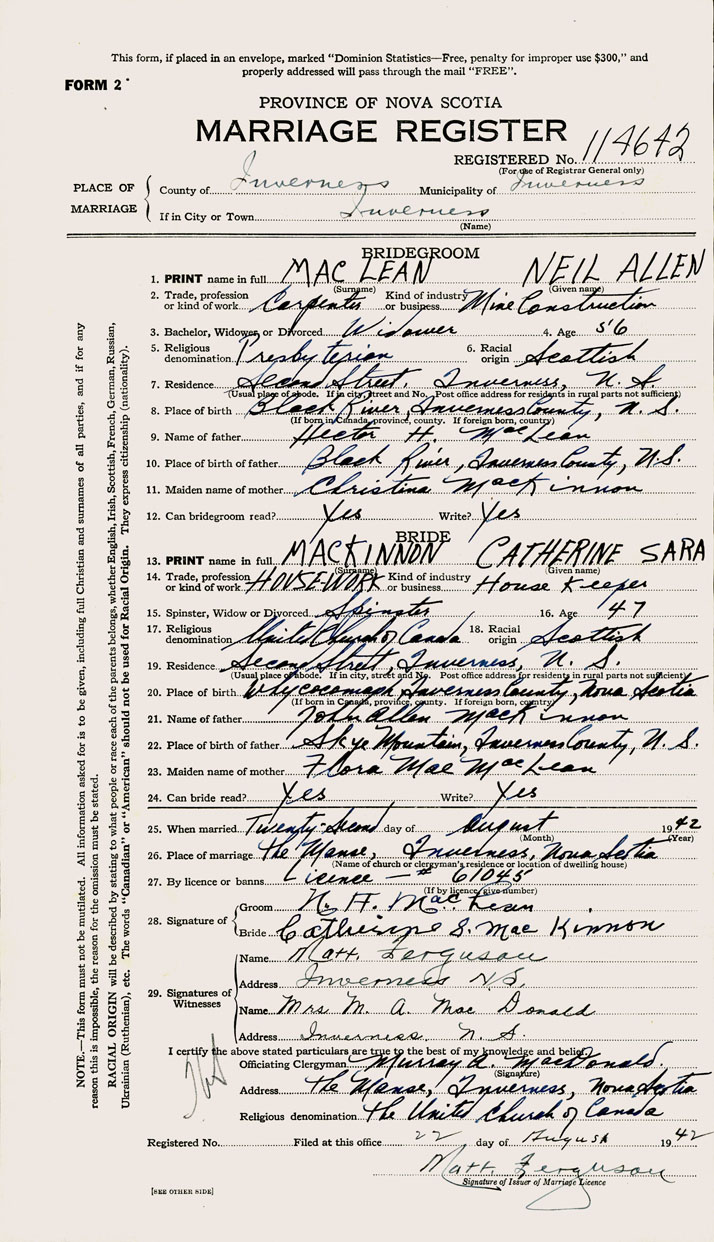 This form, if placed in an envelope, marked "Dominion Statistics—Free, penalty for improper use $300," and
properly addressed will pass through the mail "FREE".
FORM 2
PROVINCE OF NOVA SCOTIA
MARRIAGE REGISTER
REGISTERED No. 114642
(For use of Registrar General only)
PLACE OF MARRIAGE
County of Inverness Municipality of Inverness
If in City or Town Inverness
(Name)
BRIDEGROOM
1. PRINT name in full MAC LEAN NEIL ALLEN
(Surname) (Given name)
2. Trade, profession or kind of work Carpenter Kind of industry or business Mine Construction
3. Bachelor, Widower or Divorced Widower 4. Age 56
5. Religious denomination Presbyterian 6. Racial origin Scottish
7. Residence Second Street, Inverness, N. S.
(Usual place of abode. If in city, street and No. Post office address for residents in rural parts not sufficient)
8. Place of birth Black River, Inverness County, N. S.
(If born in Canada, province, county. If foreign born, country)
9. Name of father Hector H. MacLean
10. Place of birth of father Black River, Inverness County, N.S.
11. Maiden name of mother Christina MacKinnon
12. Can bridegroom read? Yes Write? Yes
BRIDE
13. PRINT name in full MACKINNON CATHERINE SARA
(Surname) (Given name)
14. Trade, profession or kind of work HOUSEWORK Kind of industry or business House Keeper
15. Spinster, Widow or Divorced Spinster 16. Age 47
17. Religious denomination United Church of Canada 18. Racial origin Scottish
19. Residence Second Street, Inverness, N. S.
(Usual place of abode. If in city, street and No. Post office address for residents in rural parts not sufficient)
20. Place of birth Whycocomagh Inverness County, Nova Scotia
(If born in Canada, province, county. If foreign born, country)
21. Name of father John Allen MacKinnon
22. Place of birth of father Skye Mountain, Inverness County, N. S.
23. Maiden name of mother Flora Mae MacLean
24. Can bride read? Yes Write? Yes
25. When married Twenty-Second day of August 1942
(Month) (Year)
26. Place of marriage The Manse, Inverness, Nova Scotia
(Name of church or clergyman's residence or location of dwelling house)
27. By licence or banns Licence — # 61045
(If by licence give number)
28. Signature of
Groom N. A. MacLean
Bride Catherine S. MacKinnon
29. Signatures of Witnesses
Name Matt. Ferguson
Address Inverness N.S.
Name Mrs M. A. MacDonald
Address Inverness. N. S.
I certify the above stated particulars are true to the best of my knowledge and belief.
Officiating Clergyman Murray A. MacDonald.
(Signature)
Address The Manse, Inverness, Nova Scotia
Religious denomination The United Church of Canada
Registered No. Filed at this office 22 day of August 1942
Matt. Ferguson
Signature of Issuer of Marriage Licence
[SEE OTHER SIDE]
NOTE.—This form must not be mutilated. All information asked for is to be given, including full Christian and surnames of all parties, and if for any
reason this is impossible, the reason for the omission must be stated.
RACIAL ORIGIN will be described by stating to what people or race each of the parents belongs, whether English, Irish, Scottish, French, German, Russian,
Ukrainian (Ruthenian), etc. The words "Canadian" or "American" should not be used for Racial Origin. They express citizenship (nationality).